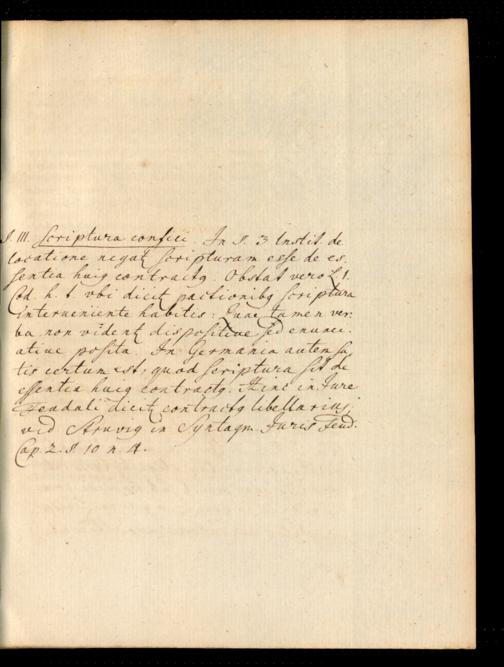 §. III. Scriptura confici. In §. 3 Instit de
locatione negat scripturam esse de es.
sentia huiq contractq. Obstat vero L. 1.
Cod. h. t vbi dicit pactionibq scriptura
interveniente habitis: Quae tamen ver:
ba non vident dispositive sed enunci.
ative posita. In Germania autem sa
tis certum est, quod scriptura sit de
essentia huiq contractq. Hinc in Jure
Feudali dicit contractq libellarius;
vid Struvig in Syntagm. Juris Feud.
Cap. 2. §. 10 n. 4.